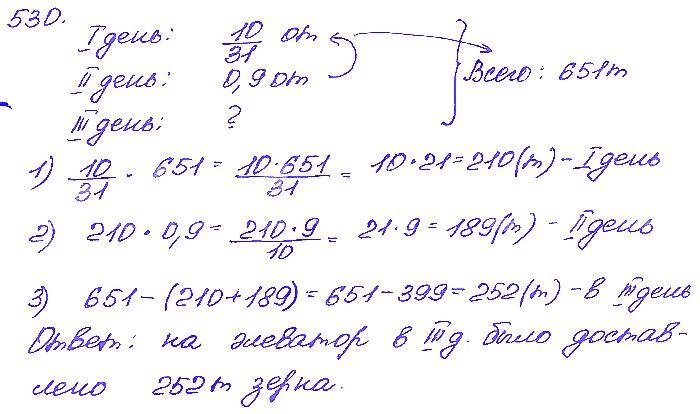 530.
I день: 10/31 от
II день: 0,9 от
III день: ?
Всего: 651т
1) 10/31 · 651 = 10·651/31 = 10·21=210(т) – I день
2) 210 · 0,9 = 210·9/10 = 21·9 = 189(т) – II день
3) 651–(210+189)=651–399=252(т) –в III день
Ответ: на элеватор в III д. было достав-
лено 252т зерна.